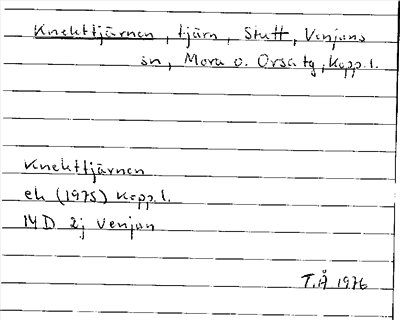 Knekttjärnen, tjärn, Stutt, Venjans
sn, Mora o. Orsa tg, Kopp.l.
Knekttjärnen
ek (1975) Kopp.l.
14D 2j Venjan
T.Å 1976